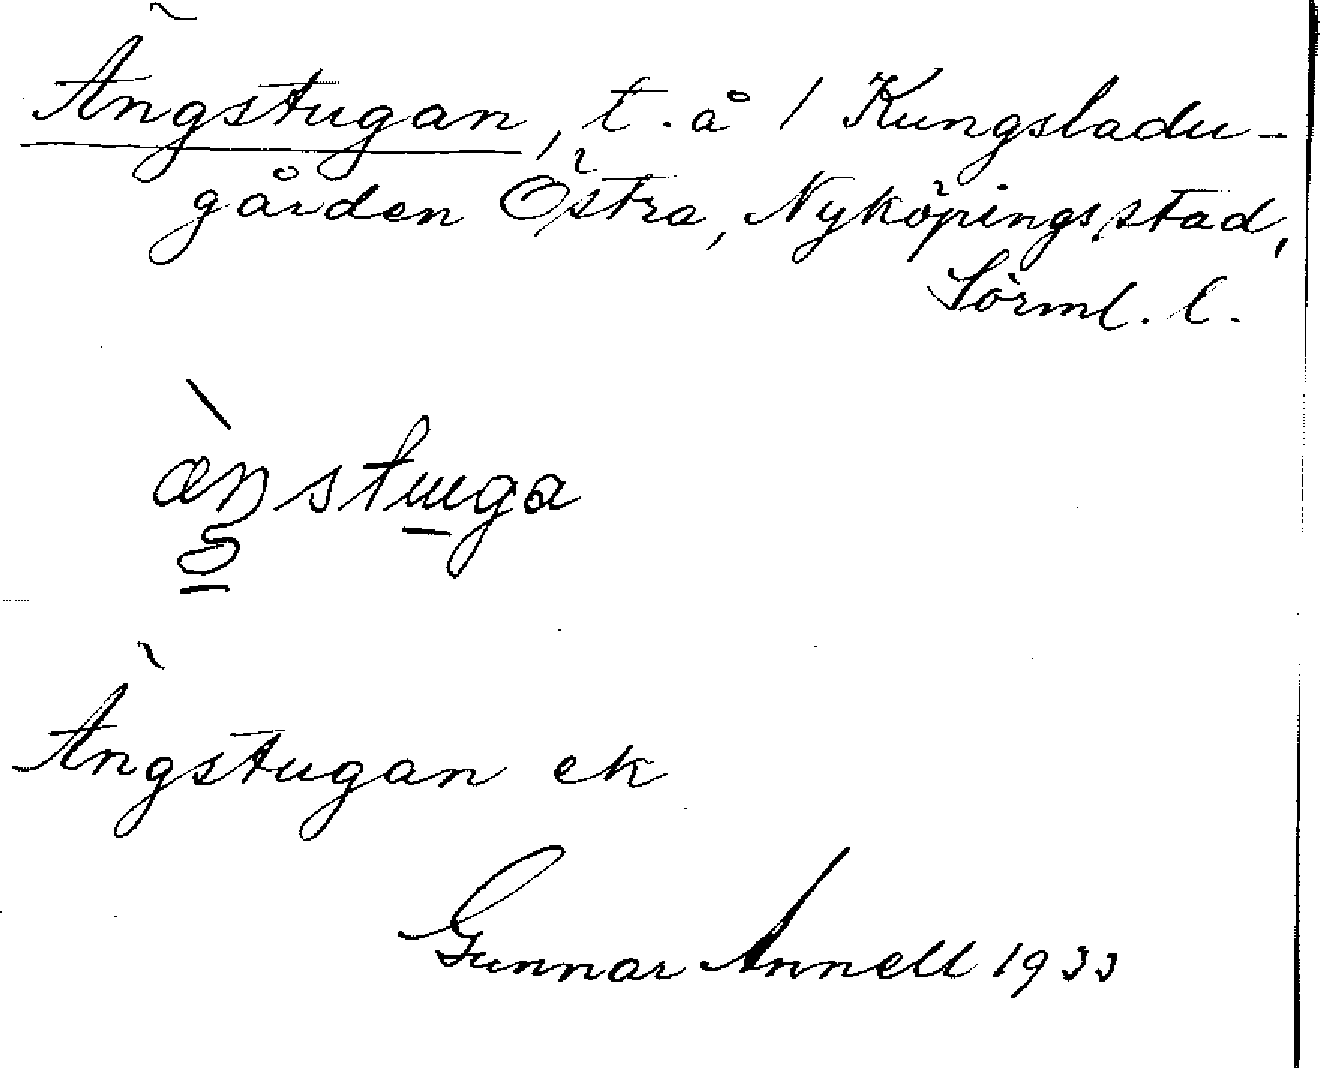 Ängstugan, t. å 1 Kungsladu-
gården Östra, Nyköpings stad,
Sörml. l.
Ängstugan ek
Gunnar Annell 1933